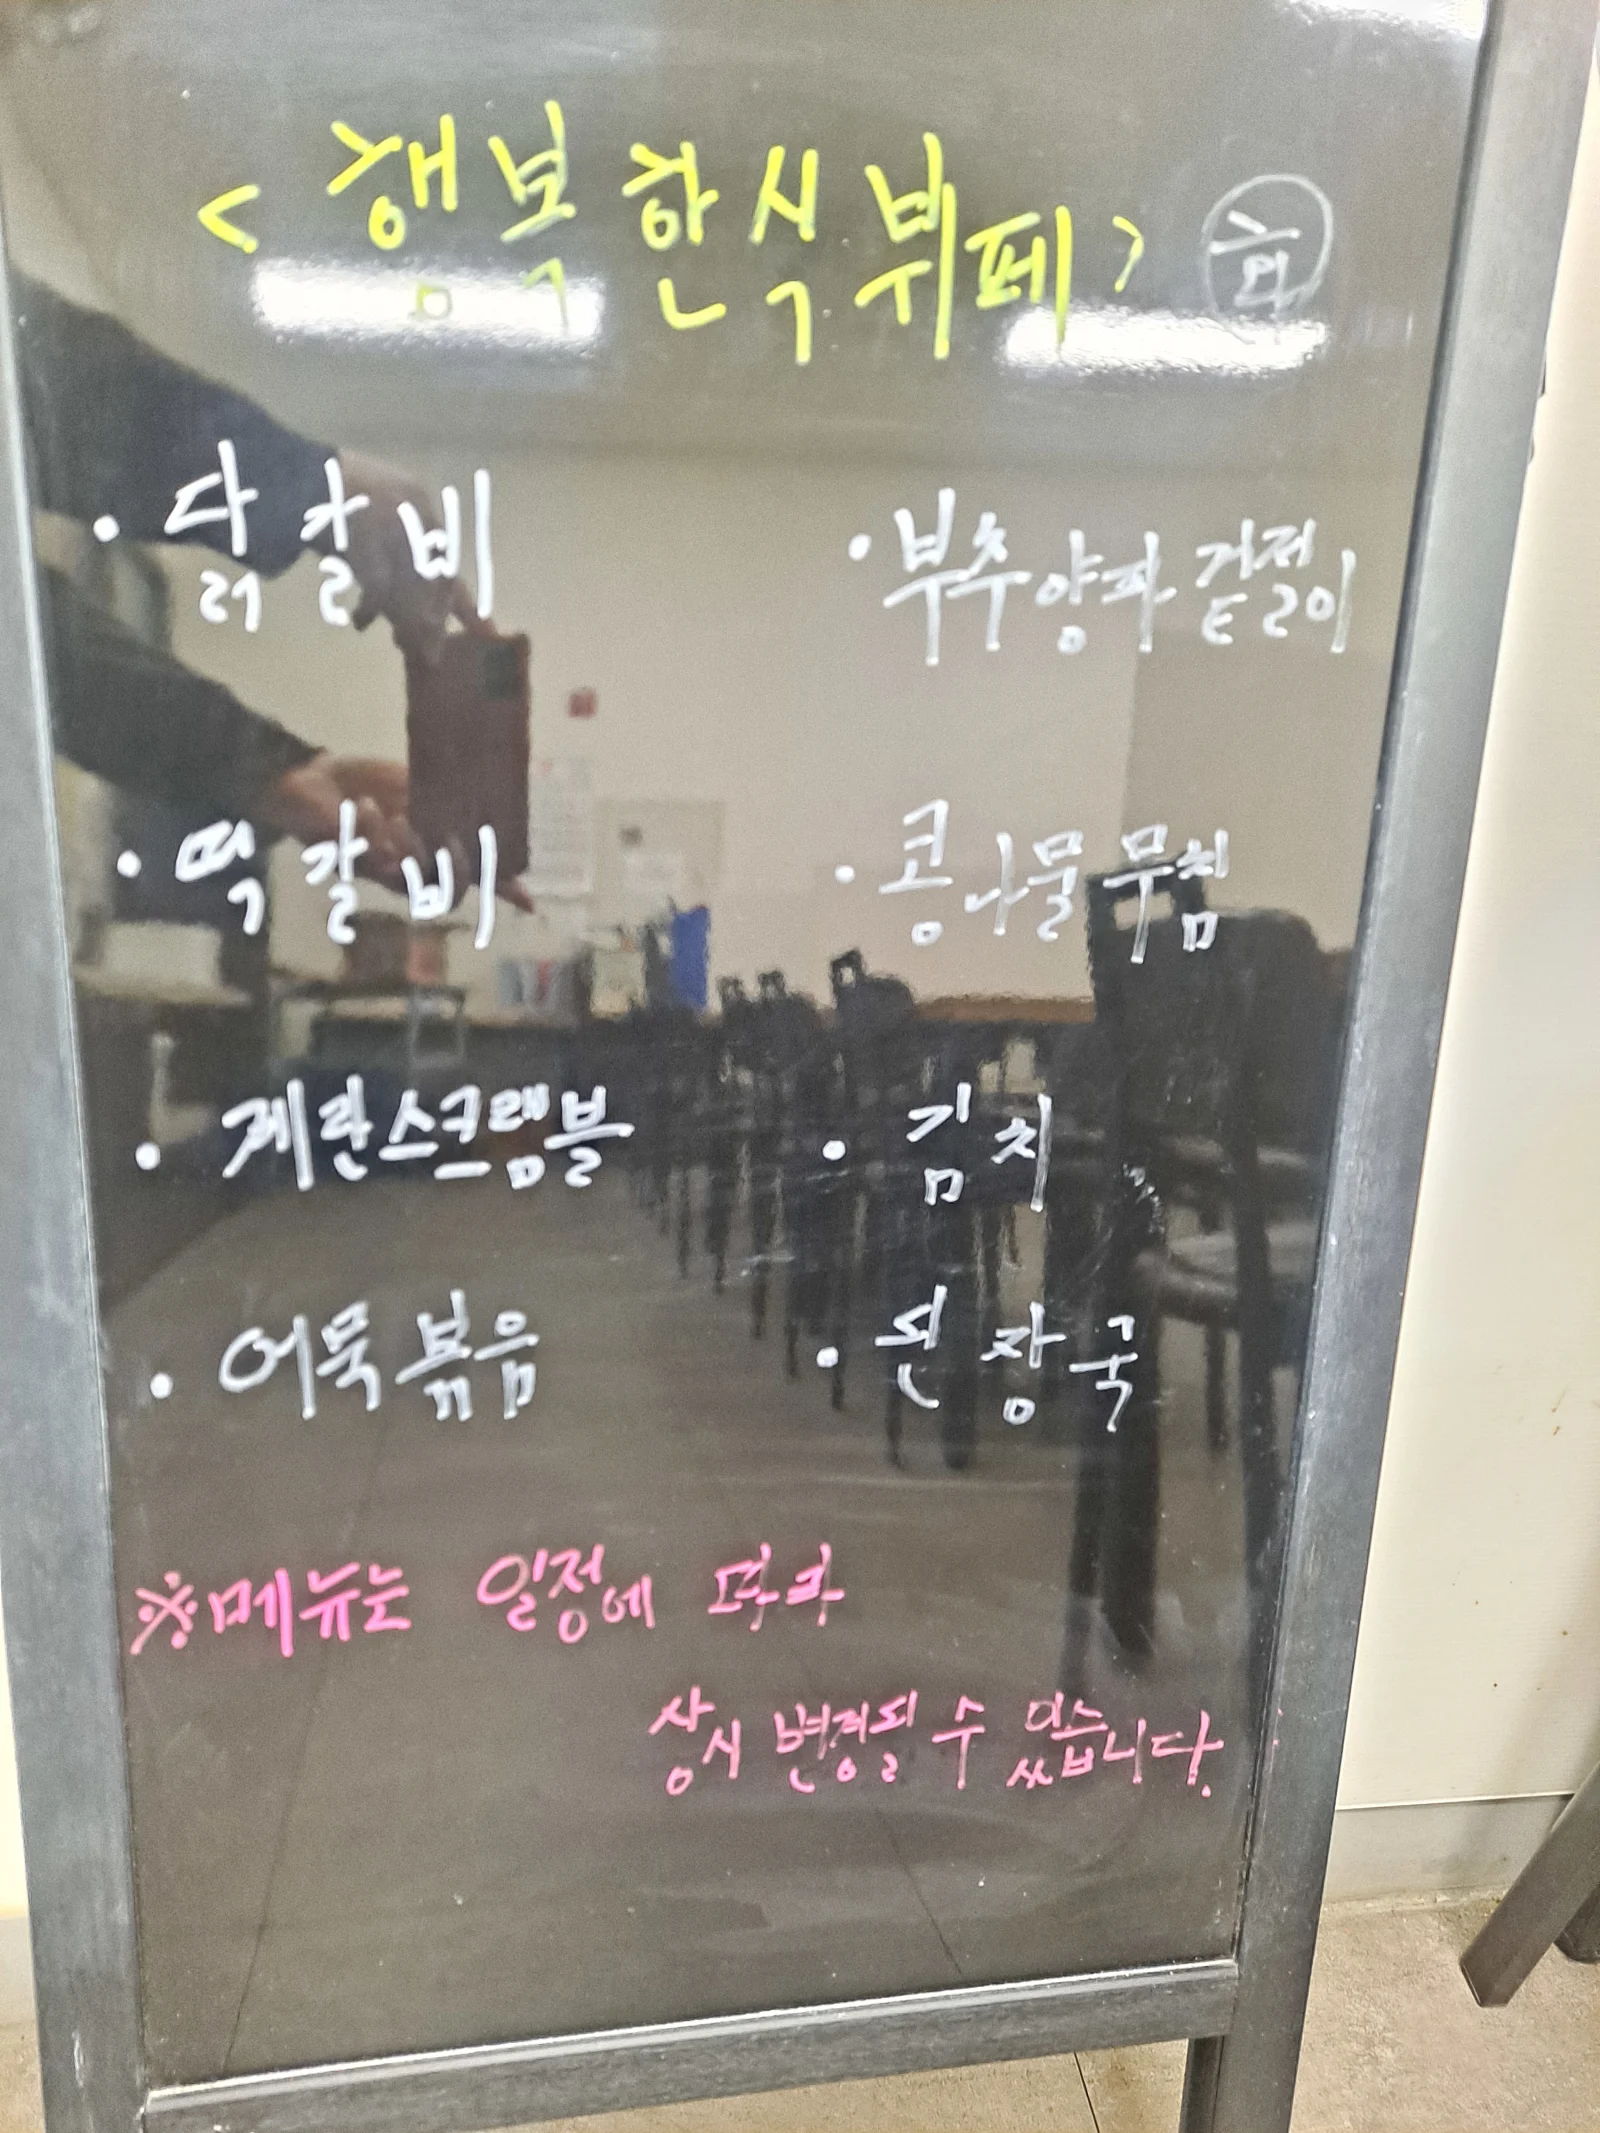 <행복한식뷔페> 화
· 닭갈비
· 부추양파겉절이
· 떡갈비
· 콩나물무침
· 계란스크램블
· 김치
· 어묵볶음
· 된장국
※메뉴는 일정에 따라
상시 변경될 수 있습니다.